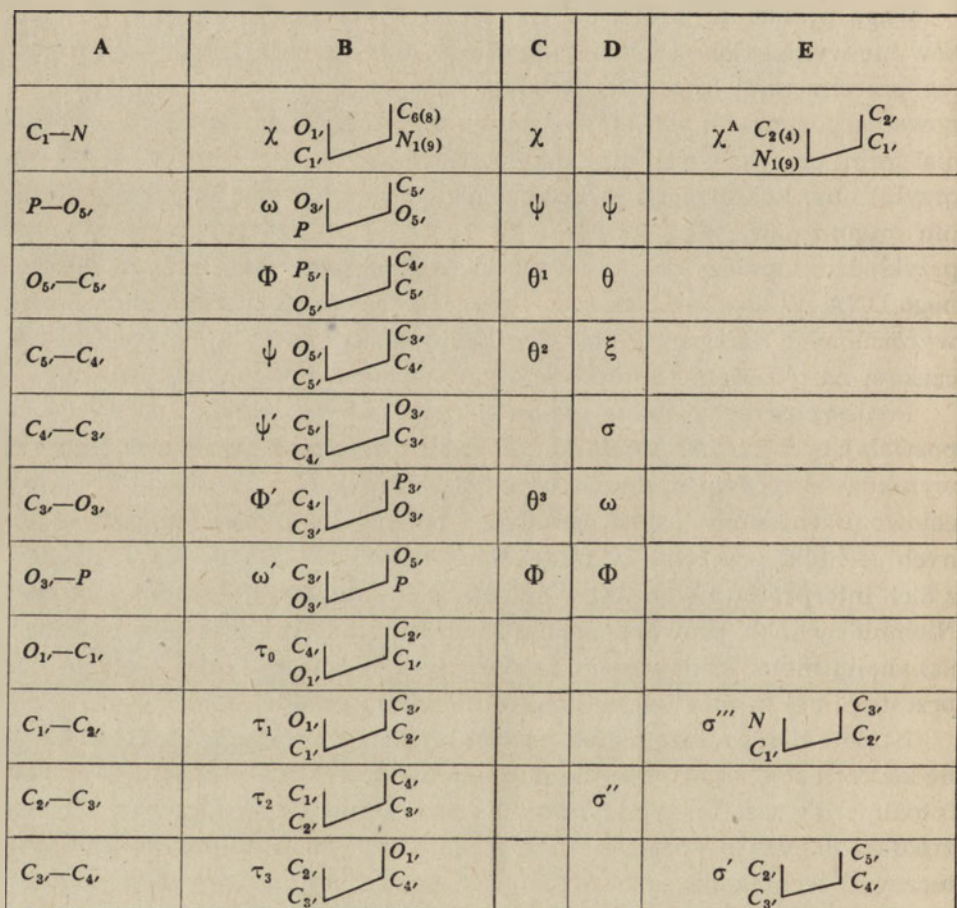 A B C D E
C₁—N χ O₁′ C₁′ C₆₍₈₎ N₁₍₉₎ χ χᴬ C₂₍₄₎ N₁₍₉₎ C₂′ C₁′
P—O₅′ ω O₃′ P C₅′ O₅′ ψ ψ
O₅′—C₅′ Φ P₅′ O₅′ C₄′ C₅′ θ¹ θ
C₅′—C₄′ ψ O₅′ C₅′ C₃′ C₄′ θ² ξ
C₄′—C₃′ ψ′ C₅′ C₄′ O₃′ C₃′ σ
C₃′—O₃′ Φ′ C₄′ C₃′ P₃′ O₃′ θ³ ω
O₃′—P ω′ C₃′ O₃′ O₅′ P Φ Φ
O₁′—C₁′ τ₀ C₄′ O₁′ C₂′ C₁′
C₁′—C₂′ τ₁ O₁′ C₁′ C₃′ C₂′ σ‴ N C₁′ C₃′ C₂′
C₂′—C₃′ τ₂ C₁′ C₂′ C₄′ C₃′ σ″
C₃′—C₄′ τ₃ C₂′ C₃′ O₁′ C₄′ σ′ C₂′ C₃′ C₅′ C₄′